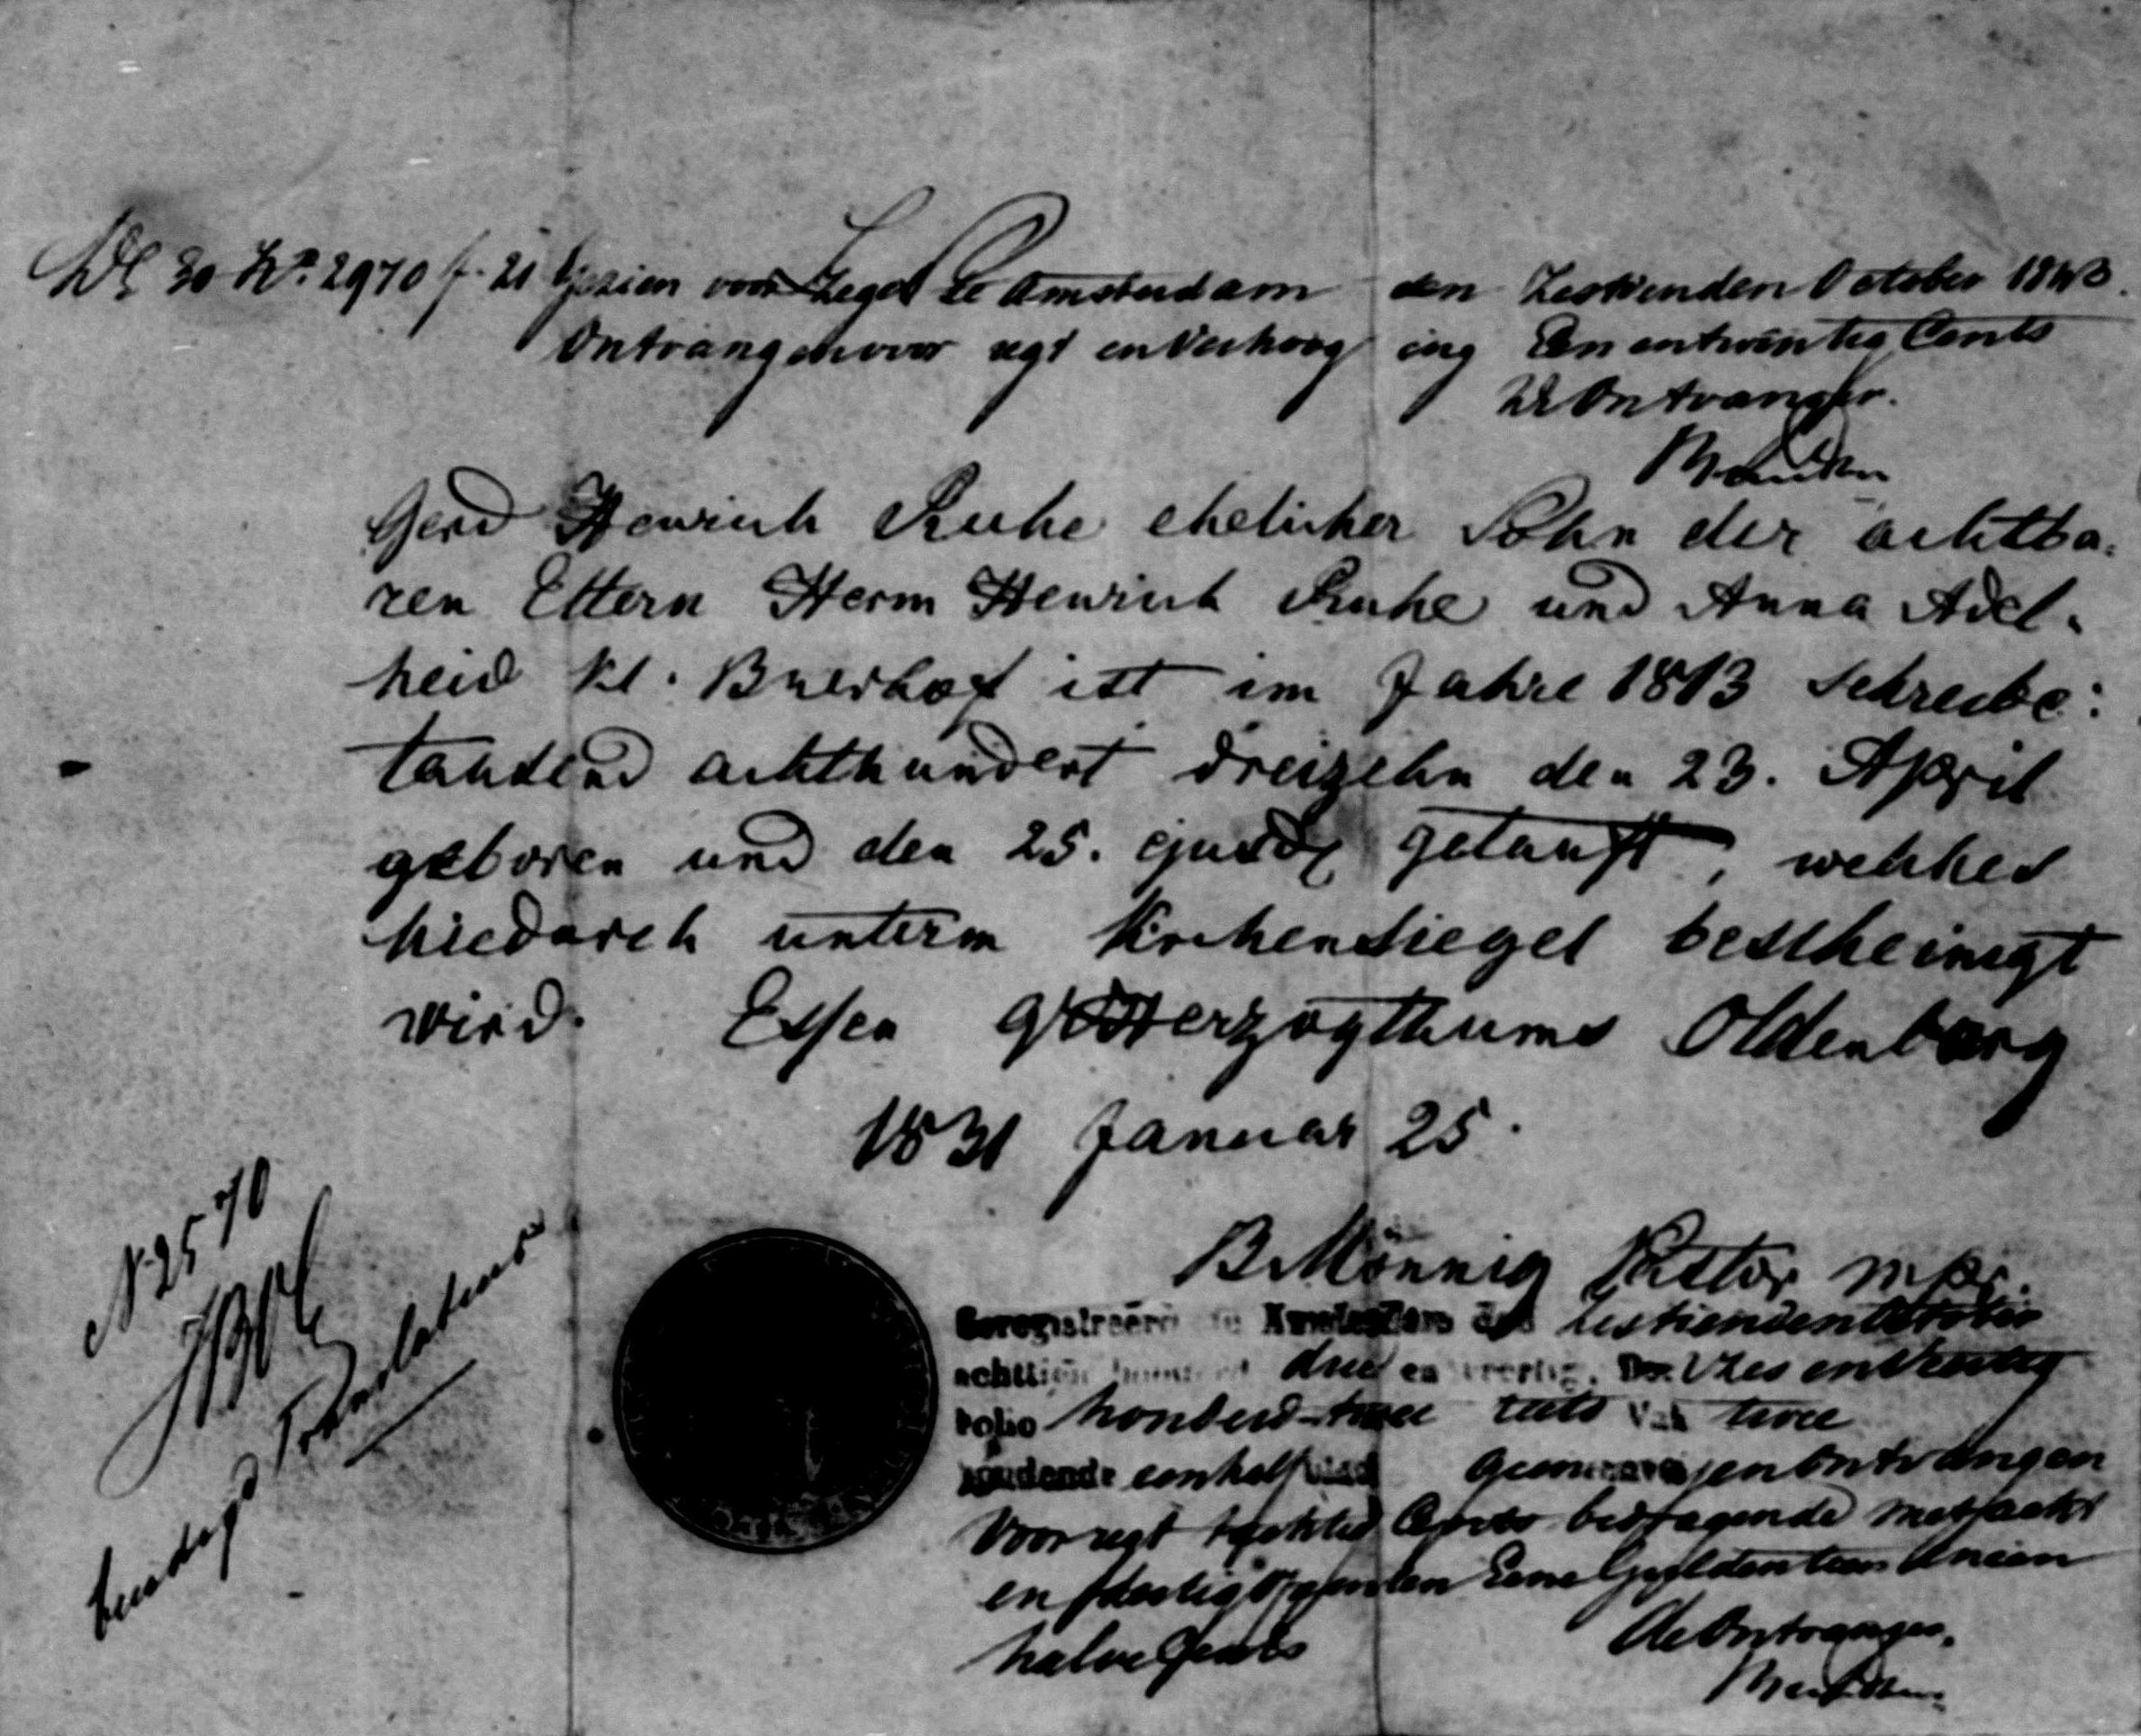 No. 2970 f. 21 Gezien voor Zegel te Amsterdam den Zestienden October 1843.
Ontvangen voor regt en Verhooging Een en twintig Cents
De Ontvanger.
Gerd Henrich Ruhe ehelicher Sohn der achtba-
ren Eltern Herm Henrich Ruhe und Anna Adel-
heid kl. Buerhof ist im Jahre 1813 schreibe:
tausend achthundert dreizehn den 23. April
geboren und den 25. ejusd getauft, welches
hiedurch unterm Kirchensiegel bescheinigt
wird. Essen Großherzogthums Oldenburg
1831 Januar 25.
B Mönnig Pastor mpr.
Geregistreerd te Amsterdam den Zestienden October
achttien honderd drie en veertig. Do. Vles en Veertig
folio honderd twee recto vak twee
houdende een half blad geene renvoijen Ontvangen
Voor regt tachtig Cents bedragende met acht
en dertig Opcenten Eene Gulden tien Eneen
halve Cents
De Ontvanger.
N 2570
beedigd Translateur